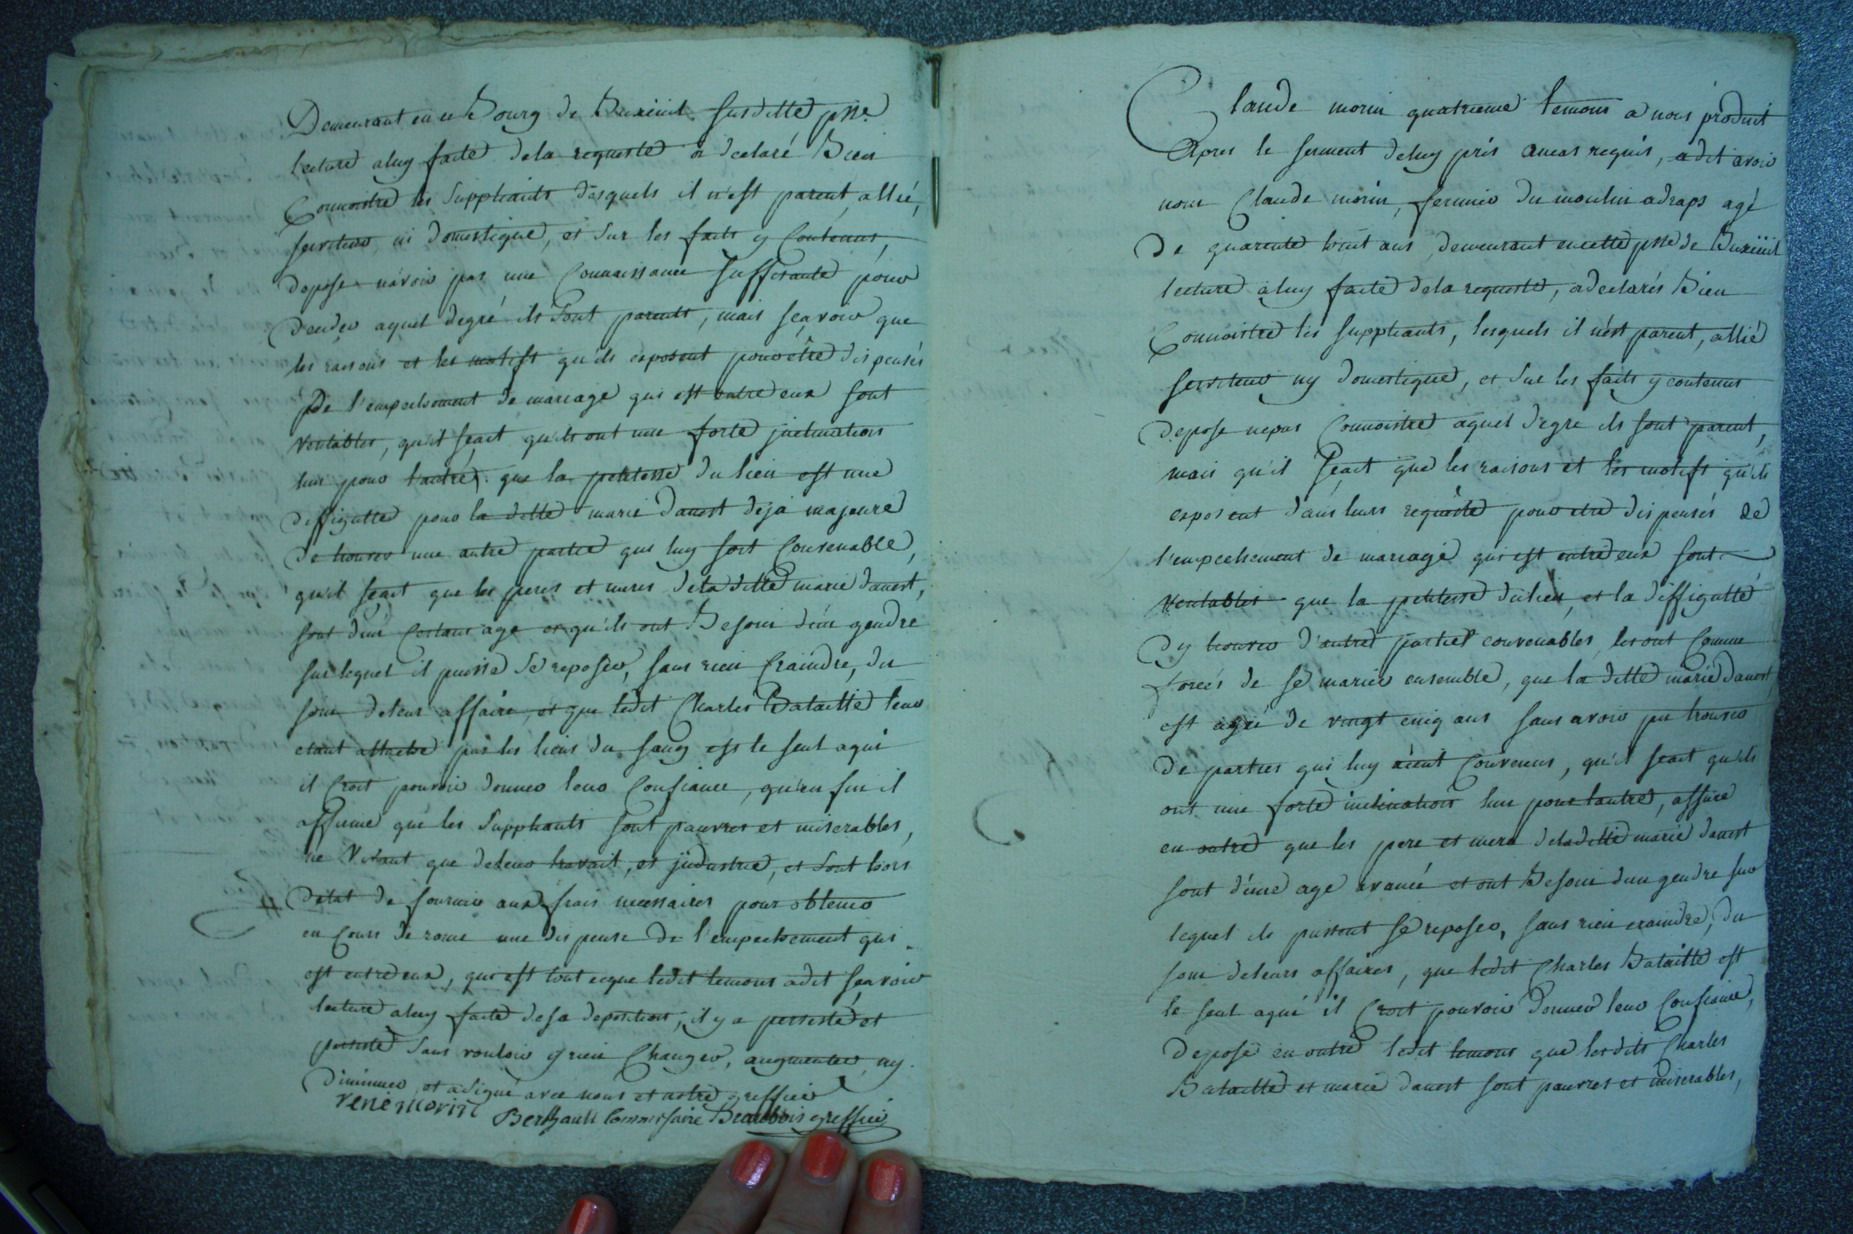 Demeurant en ce Bourg de Buxeuil susditte psse
lecture a luy faitte de la requeste a declaré Bien
Connoistre les Suppliants desquels il n'est parent, allié,
serviteur, ni domestique, et sur les faits y Contenus,
depose n'avoir pas une Connaissance Suffisante pour
decider a quel degré ils sont parents, mais sçavoir que
les raisons et les motifs qu'ils exposent pour être dispensés
De l'empechement de mariage qui est entre eux sont
veritables, qu'il sçait qu'ils ont une forte inclination
l'un pour l'autre, que la petitesse du lieu est une
diffigulté pour la ditte marie davost deja majeure
de trouver une autre partie qui luy soit Convenable,
qu'il sçait que les peres et meres de la ditte marie davost,
sont d'un Certain age et qu'ils ont Besoin d'un gendre
sur lequel il puisse se reposer, sans rien Craindre, du
soin de leur affaire, et que ledit Charles Bataille leur
etant attaché par les liens du sang est le seul a qui
il Croit pouvoir donner leur Confiance, qu'en fin il
assure que les Suppliants sont pauvres et miserables,
ne Vivant que de leur travail, et industrie, et sont hors
d'etat de fournir aux frais necessaires pour obtenir
en Cour de rome une dispense de l'empechement qui
est entre eux, qui est tout ce que ledit temoins a dit sçavoir
lecture a luy faitte de sa deposition, il y a persisté et
persiste sans vouloir y rien Changer, augmenter, ny
Diminuer, et a signé avec nous et notre greffier
rené morin
Berthault Commissaire Beaubois greffier
Claude morin quatrieme temoins a nous produit
Apres le serment de luy pris au cas requis, a dit avoir
nom Claude morin, fermier du moulin a draps agé
de quarente huit ans, demeurant en cette psse de Buxeüil
lecture a luy faitte de la requeste, a declarés Bien
Connoistre les suppliants, lesquels il n'est parent, allié
serviteur ny domestique, et sur les faits y contenus
depose ne pas Connoistre a quel degré ils sont parent,
mais qu'il sçait que les raisons et les motifs qu'ils
exposent dans leurs requeste pour etre dispensés de
l'empechement de mariage qui est entre eux sont
Veritables que la petitesse du lieu, et la diffigulté
d'y trouver d'autre parties convenables, les ont Comme
forcés de se marier ensemble, que la ditte marie davost
est agée de vingt cinq ans sans avoir pu trouver
de parties qui luy aient Convenus, qu'il sçait qu'ils
ont une forte inclination l'un pour l'autre, assure
en outre que les pere et mere de la ditte marie davost
sont d'une age avancé et ont Besoin d'un gendre sur
lequel ils puissent se reposer, sans rien craindre, du
soin de leurs affaires, que ledit Charles Bataille est
le seul a qui il Croit pouvoir Donner leur Confiance,
depose en outre ledit temoins que lesdits Charles
Bataille et marie davost sont pauvres et miserables,